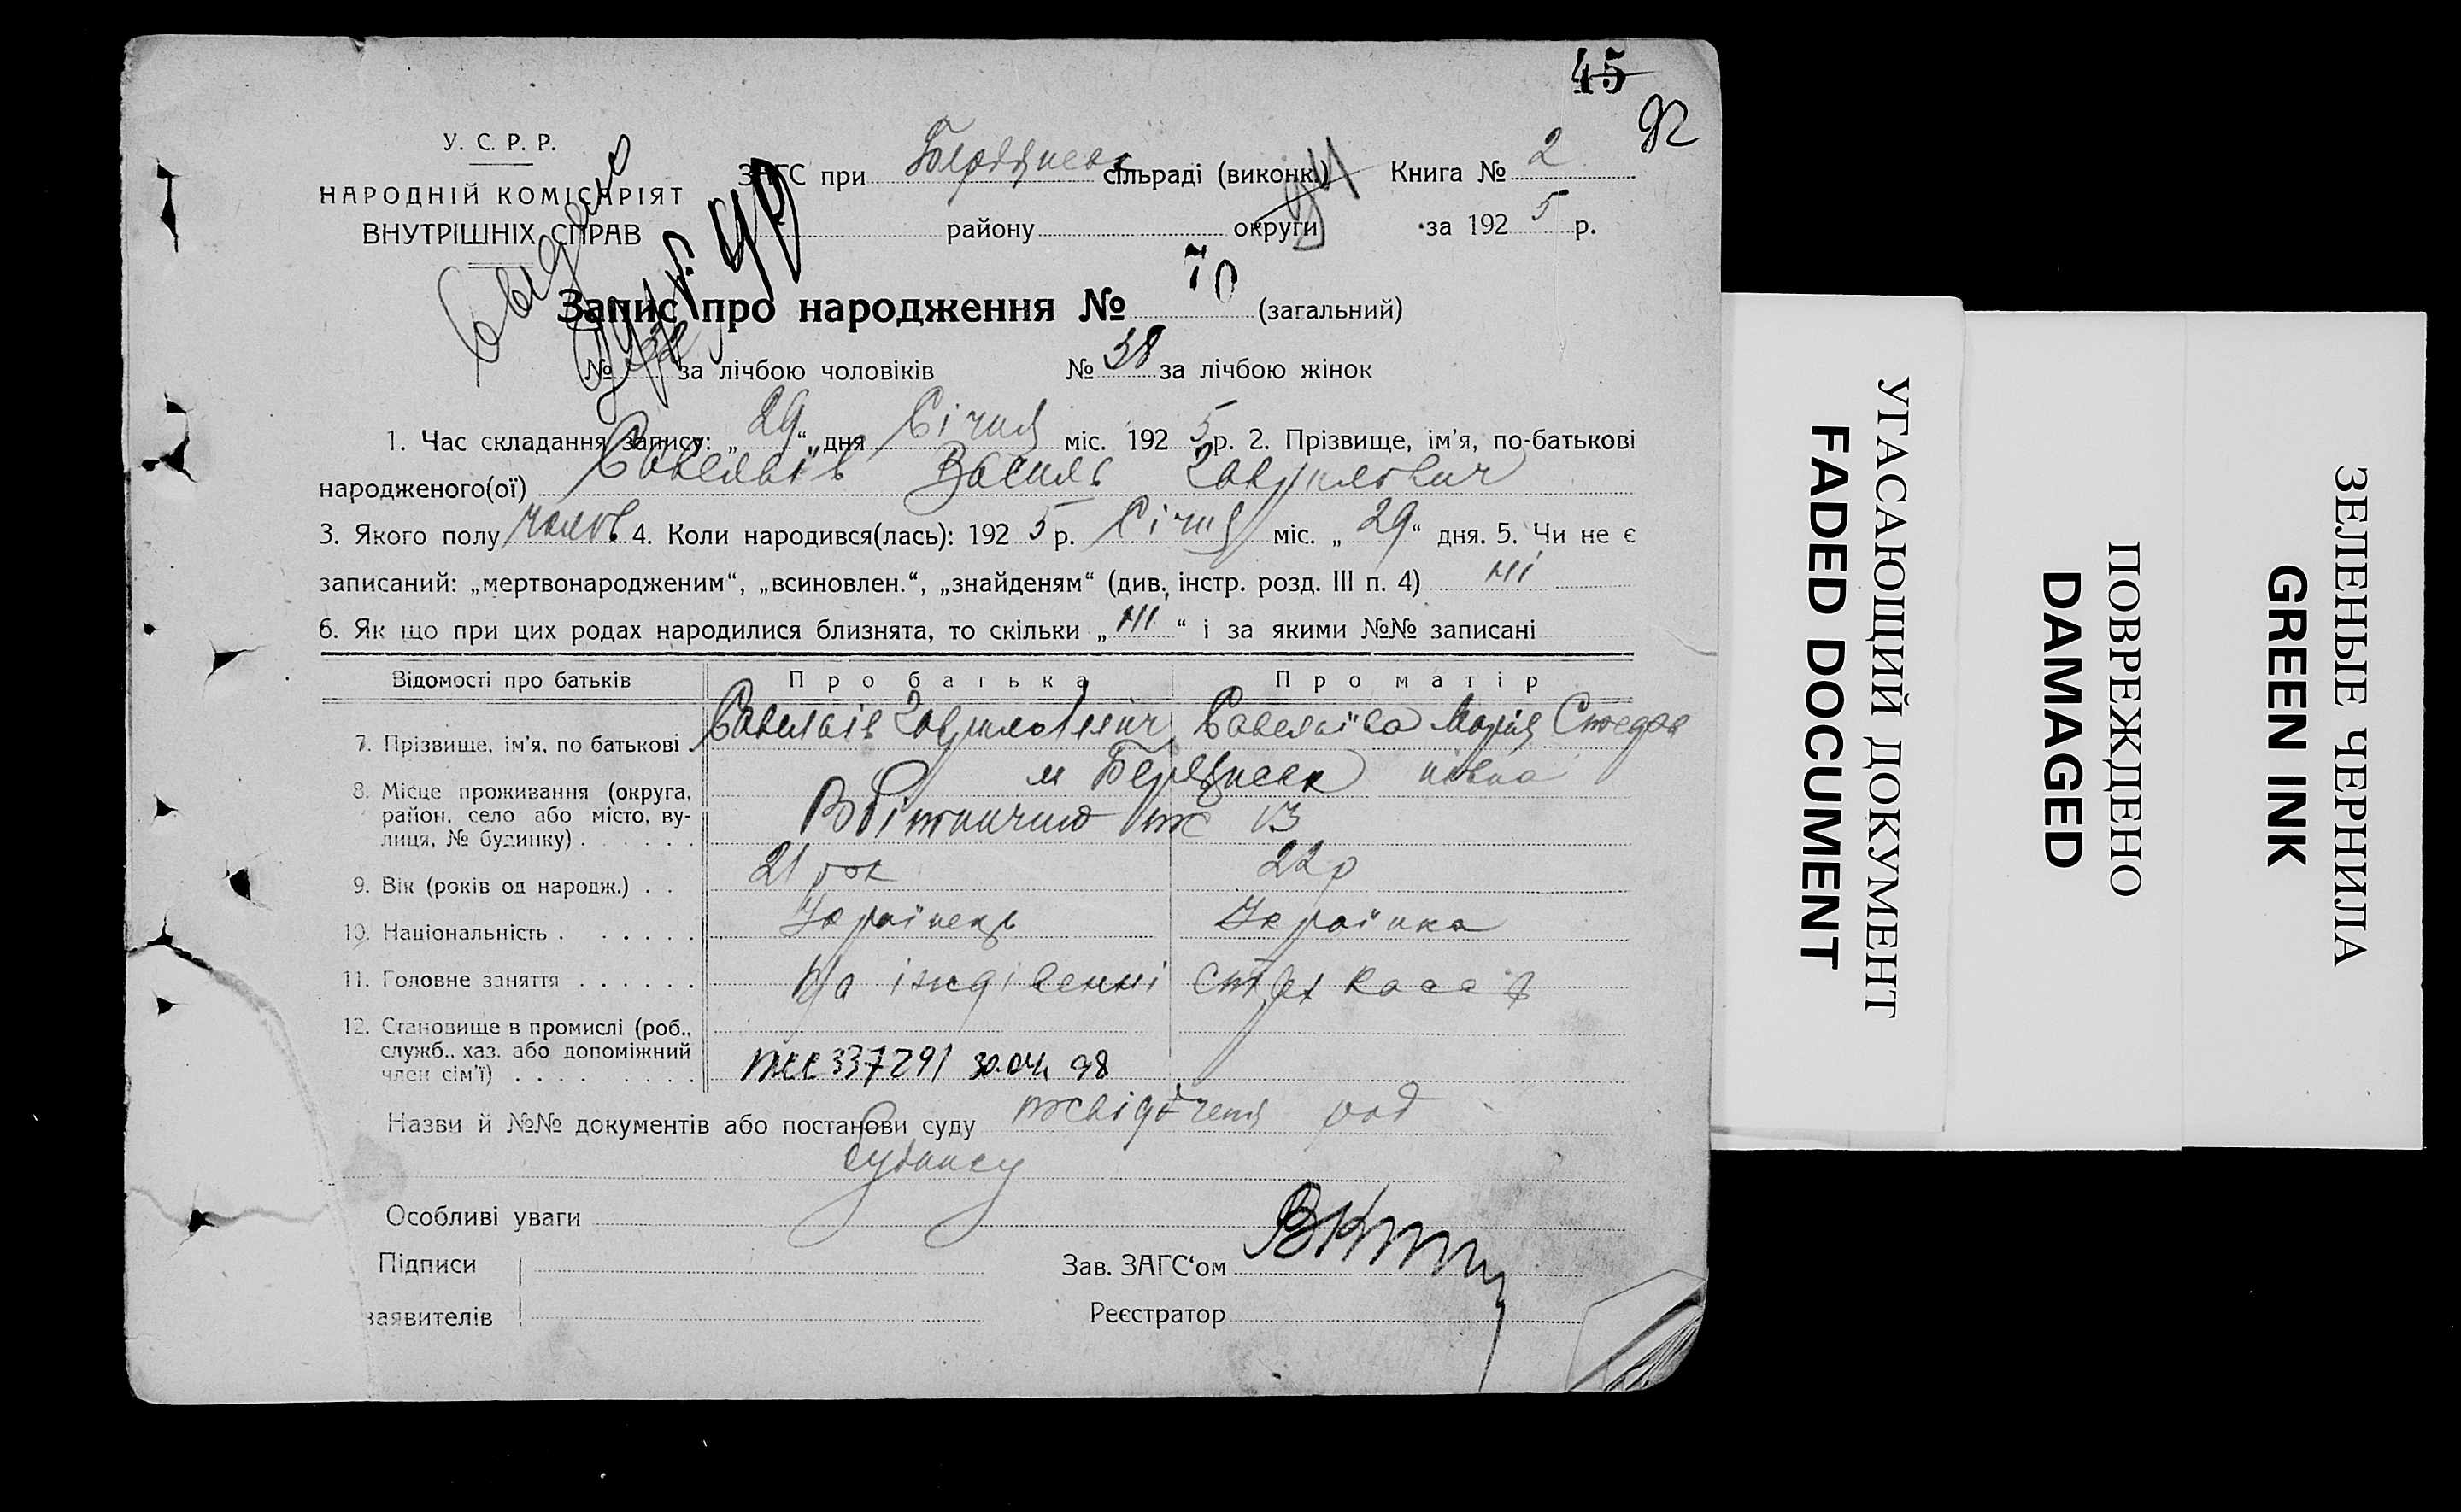 45
92
У. С. Р. Р.
НАРОДНІЙ КОМІСАРІЯТ
ВНУТРІШНІХ СПРАВ
ЗАГС при Бердянськ сільраді (виконк.) Книга № 2
району округи за 1925 р.
Запис про народження № 70 (загальний)
№ 32 за лічбою чоловіків № 38 за лічбою жінок
1. Час складання запису: „29“ дня Січня міс. 1925 р. 2. Прізвище, ім’я, по-батькові
народженого(ої) Савельїв Василь Гаврилович
3. Якого полу чолов. 4. Коли народився(лась): 1925 р. Січня міс. „29“ дня. 5. Чи не є
записаний: „мертвонародженим“, „всиновлен.“, „знайденям“ (див. інстр. розд. III п. 4) ні
6. Як що при цих родах народилися близнята, то скільки „ні“ і за якими №№ записані
Відомості про батьків Про батька Про матір
7. Прізвище, ім’я, по батькові Савельїв Савельїва Марія
8. Місце проживання (округа, м Бердянськ
район, село або місто, ву-
лиця, № будинку) 13
9. Вік (років од народж.) 21 рок 22 р
10. Національність Українець Українка
11. Головне заняття На страх касса
12. Становище в промислі (роб.,
служб., хаз. або допоміжний
член сім’ї) 337291 30.04. 98
Назви й №№ документів або постанови суду род
будинку
Особливі уваги
Підписи Зав. ЗАГС‘ом
заявителів Реєстратор
УГАСАЮЩИЙ ДОКУМЕНТ
FADED DOCUMENT
ПОВРЕЖДЕНО
DAMAGED
ЗЕЛЕНЫЕ ЧЕРНИЛА
GREEN INK